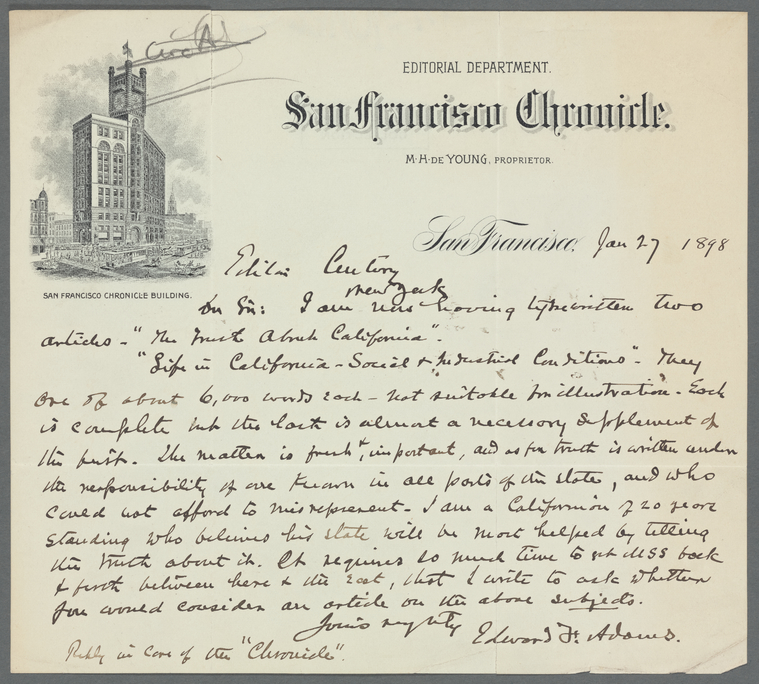 EDITORIAL DEPARTMENT.
San Francisco Chronicle.
M. H. DE YOUNG, PROPRIETOR.
SAN FRANCISCO CHRONICLE BUILDING.
San Francisco, Jan 27 1898
Editor Century
New York
Dr Sir: I am now having typewritten two
articles - "The Truth About California".
"Life in California - Social & Industrial Conditions" - They
are of about 6,000 words each - not suitable for illustration - Each
is complete but the last is almost a necessary supplement of
the first. The matter is fresh &, important, and as for truth is written under
the responsibility of one known in all parts of the state, and who
could not afford to misrepresent - I am a Californian of 20 years
standing who believes his state will be most helped by telling
the truth about it. It requires so much time to get MSS back
& forth between here & the East, that I write to ask whether
you would consider an article on the above subjects.
Yours
Edward F. Adams.
Reply in care of the "Chronicle".